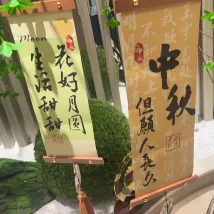 Moon
花好月圓
生活甜甜
中秋
但願人長久